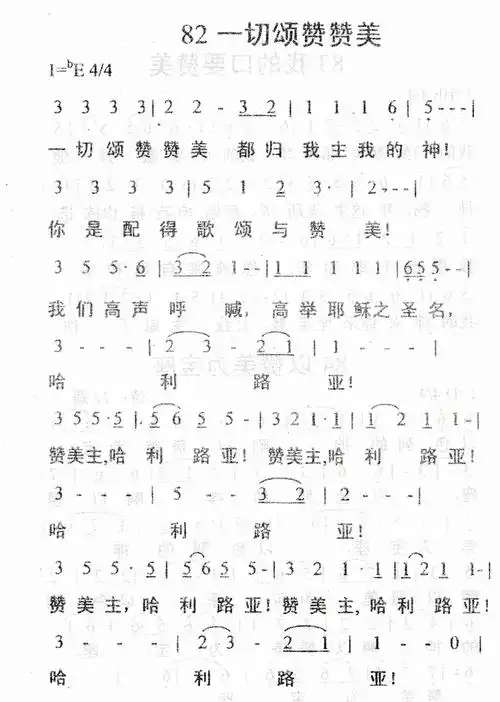 82 一切颂赞赞美
1=ᵇE 4/4
3 3 3 3 | 2 2 - 3 2 | 1 1 1 6 | 5 - - - |
一切颂赞赞美 都归我主我的神!
3 3 3 3 | 5 1 2 3 · | 2 - - - |
你是配得歌颂与赞美!
3 5 5 · 6 | 3 2 1 - - | 1 1 1 1 1 | 6 5 5 - - |
我们高声呼喊, 高举耶稣之圣名,
3 - - - | 2 3 - 2 1 | 1 - - - |
哈利路亚!
3 5 5 · 5 | 5 6 5 5 - | 3 2 1 · 1 | 1 2 1 1 - |
赞美主,哈利路亚! 赞美主,哈利路亚!
3 - - - | 5 - - 3 2 | 2 - - - |
哈利路亚!
3 5 5 · 5 | 5 6 5 5 - | 3 2 1 · 1 | 1 2 1 1 - |
赞美主, 哈利路亚! 赞美主, 哈利路亚!
3 - - - | 2 3 - 2 1 | 1 - - 0 |
哈利路亚!